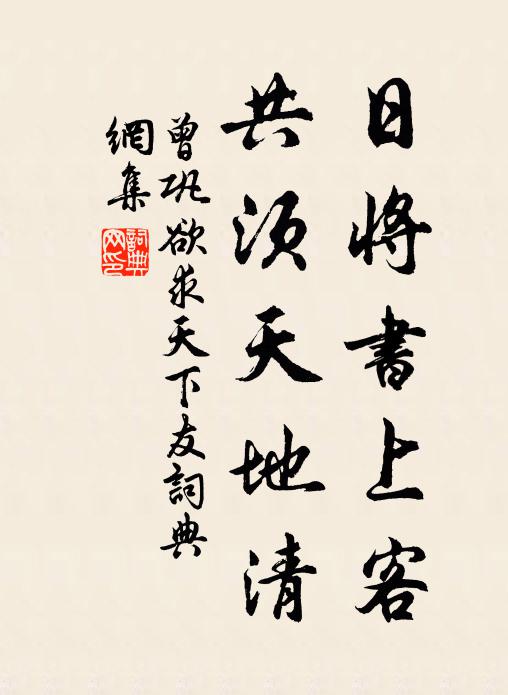 日将書上客
共須天地清
曾巩欲求天下友詞典
網集
詞典
网印